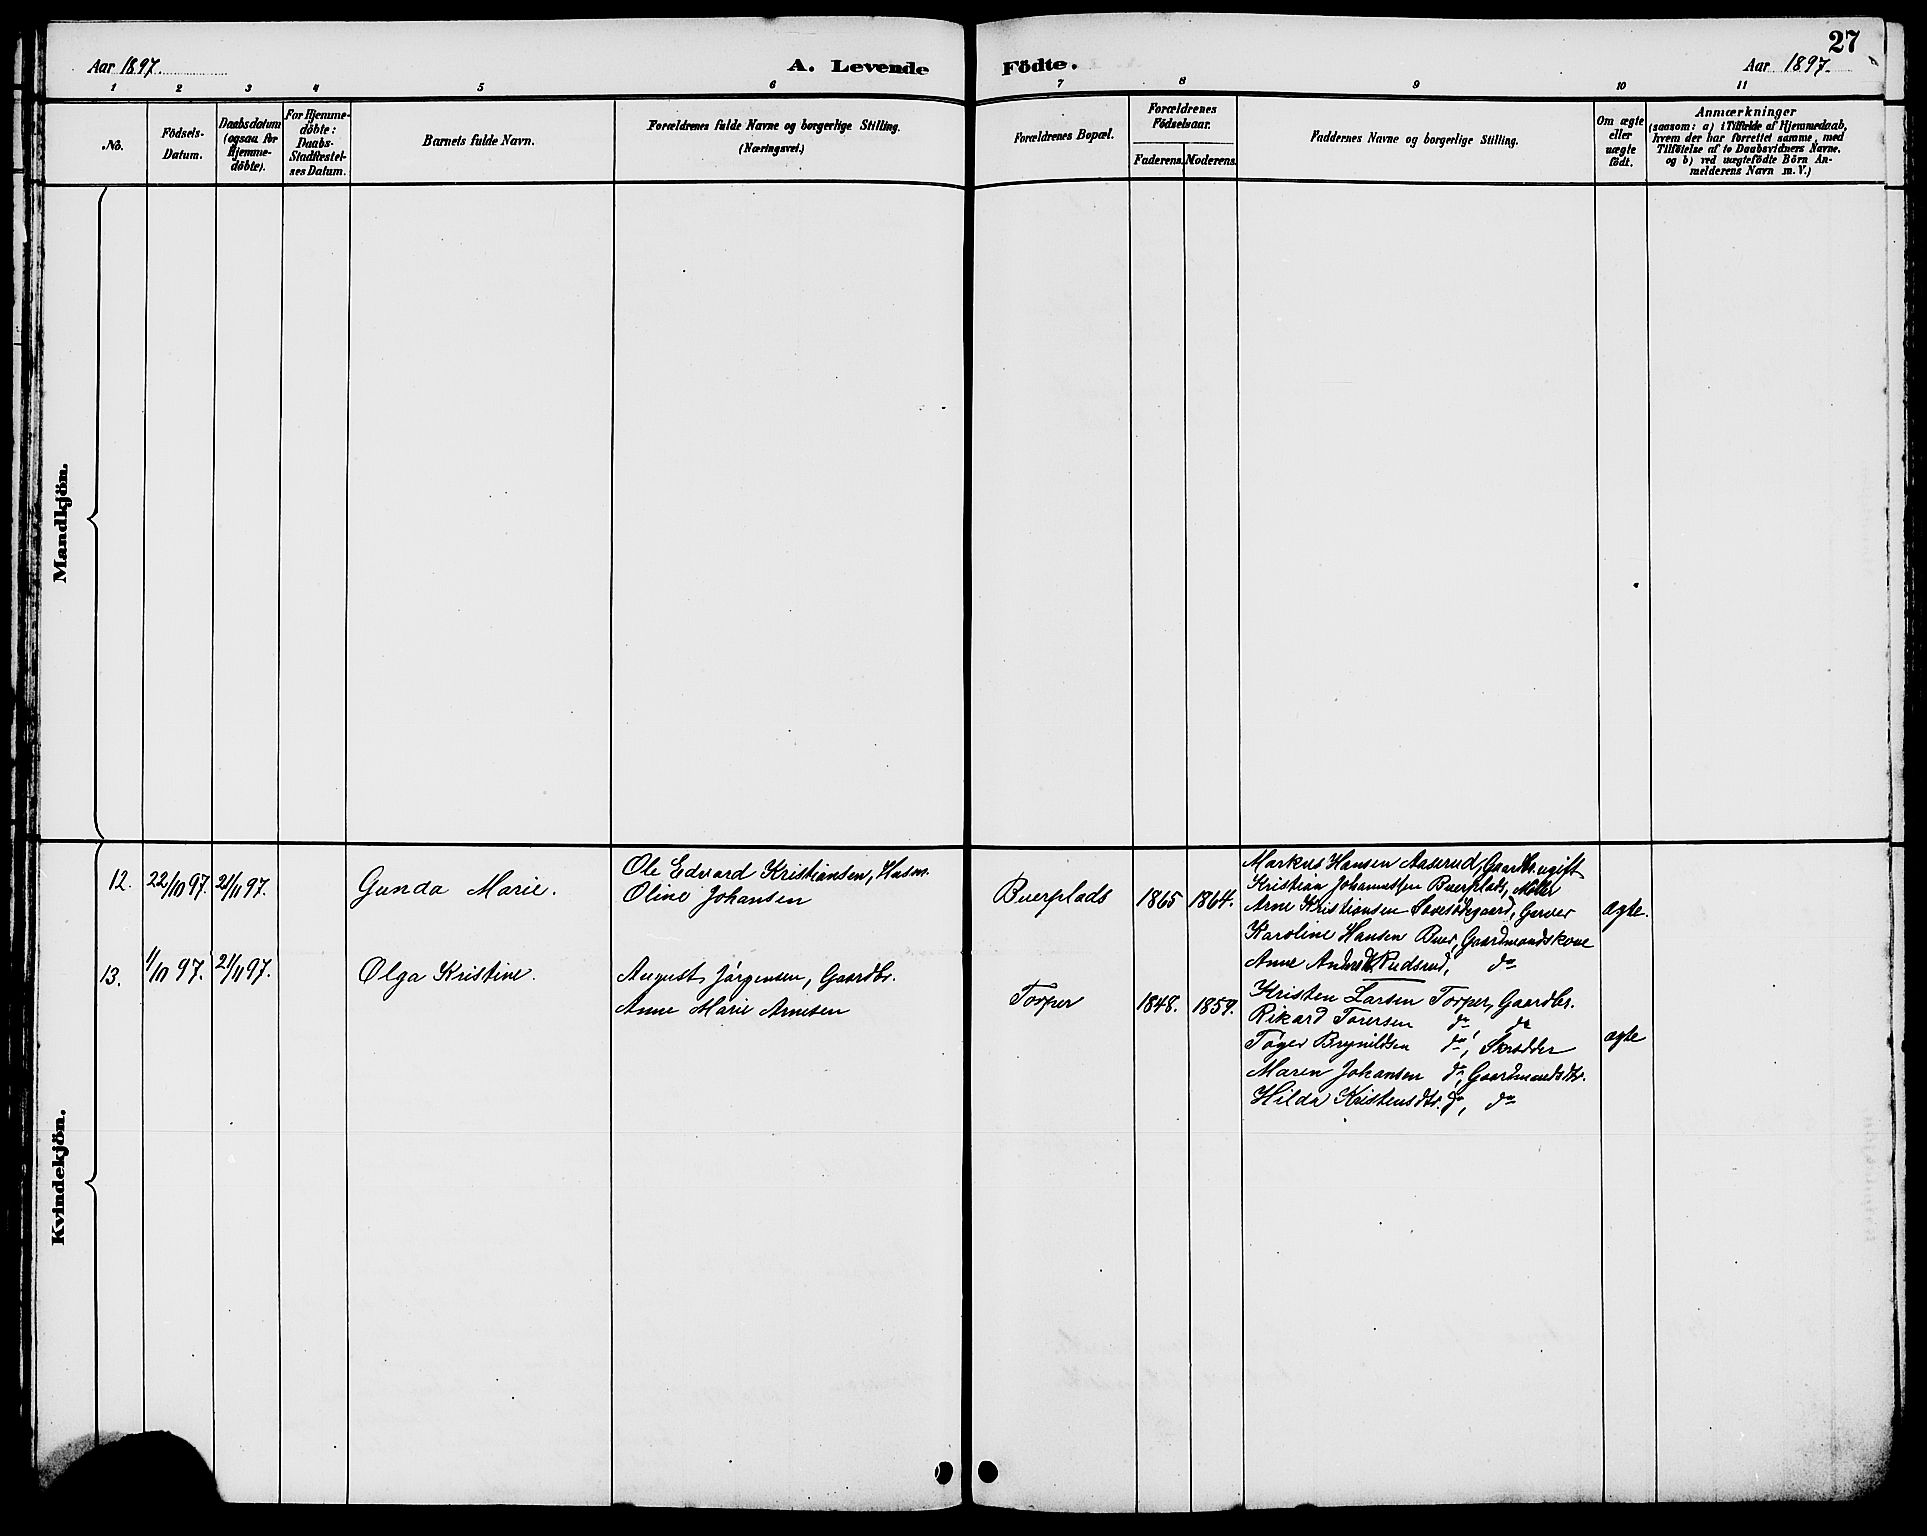 27
Aar 1897.
A. Levende Födte.
Aar 1897.
1 2 3 4 5 6 7 8 9 10 11
No.
Födsels-
Datum.
Daabsdatum
(ogsaa for
Hjemme-
döbte).
For Hjemme-
döbte:
Daabs-
Stadfæstel-
ses Datum.
Barnets fulde Navn.
Forældrenes fulde Navne og borgerlige Stilling.
(Næringsvei.)
Forældrenes Bopæl.
Forældrenes
Födselsaar.
Faderens. Moderens.
Faddernes Navne og borgerlige Stilling.
Om ægte
eller
uægte
födt.
Anmærkninger
(saasom: a) i Tilfælde af Hjemmedaab,
hvem der har forrettet samme, med
Tilföielse af to Daabsvidners Navne.
og b) ved uægtefödte Börn An-
melderens Navn m. V.)
Mandkjön.
Kvindekjön.
12. 22/10 97. 21/11 97.
Gunda Marie.
Ole Edvard Kristiansen, Husm.
Oline Johansen
Buerplads 1865 1864.
Markus Hansen Aaserud, Gaardbr. ugift
Kristian Johannessen Buerplads, Møller
Arne Kristiansen Garver
Karoline Hansen Buer, Gaardmandskone
Anne Rudsrud, do
ægte.
13. 1/10 97. 21/11 97.
Olga Kristine.
August Jörgensen, Gaardbr.
Anne Marie Arnesen
Torper 1848. 1859.
Kristen Larsen Torper, Gaardbr.
Rikard Torersen do, do
Tøger Brynildsen do, Skrædder
Maren Johansen do, Gaardmandsdtr.
Hilda Kristensdtr. do, do
ægte